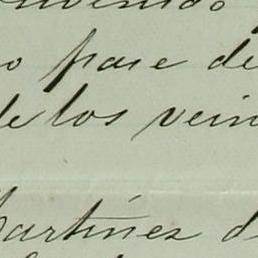 o pase de
de los vein
Martínez d